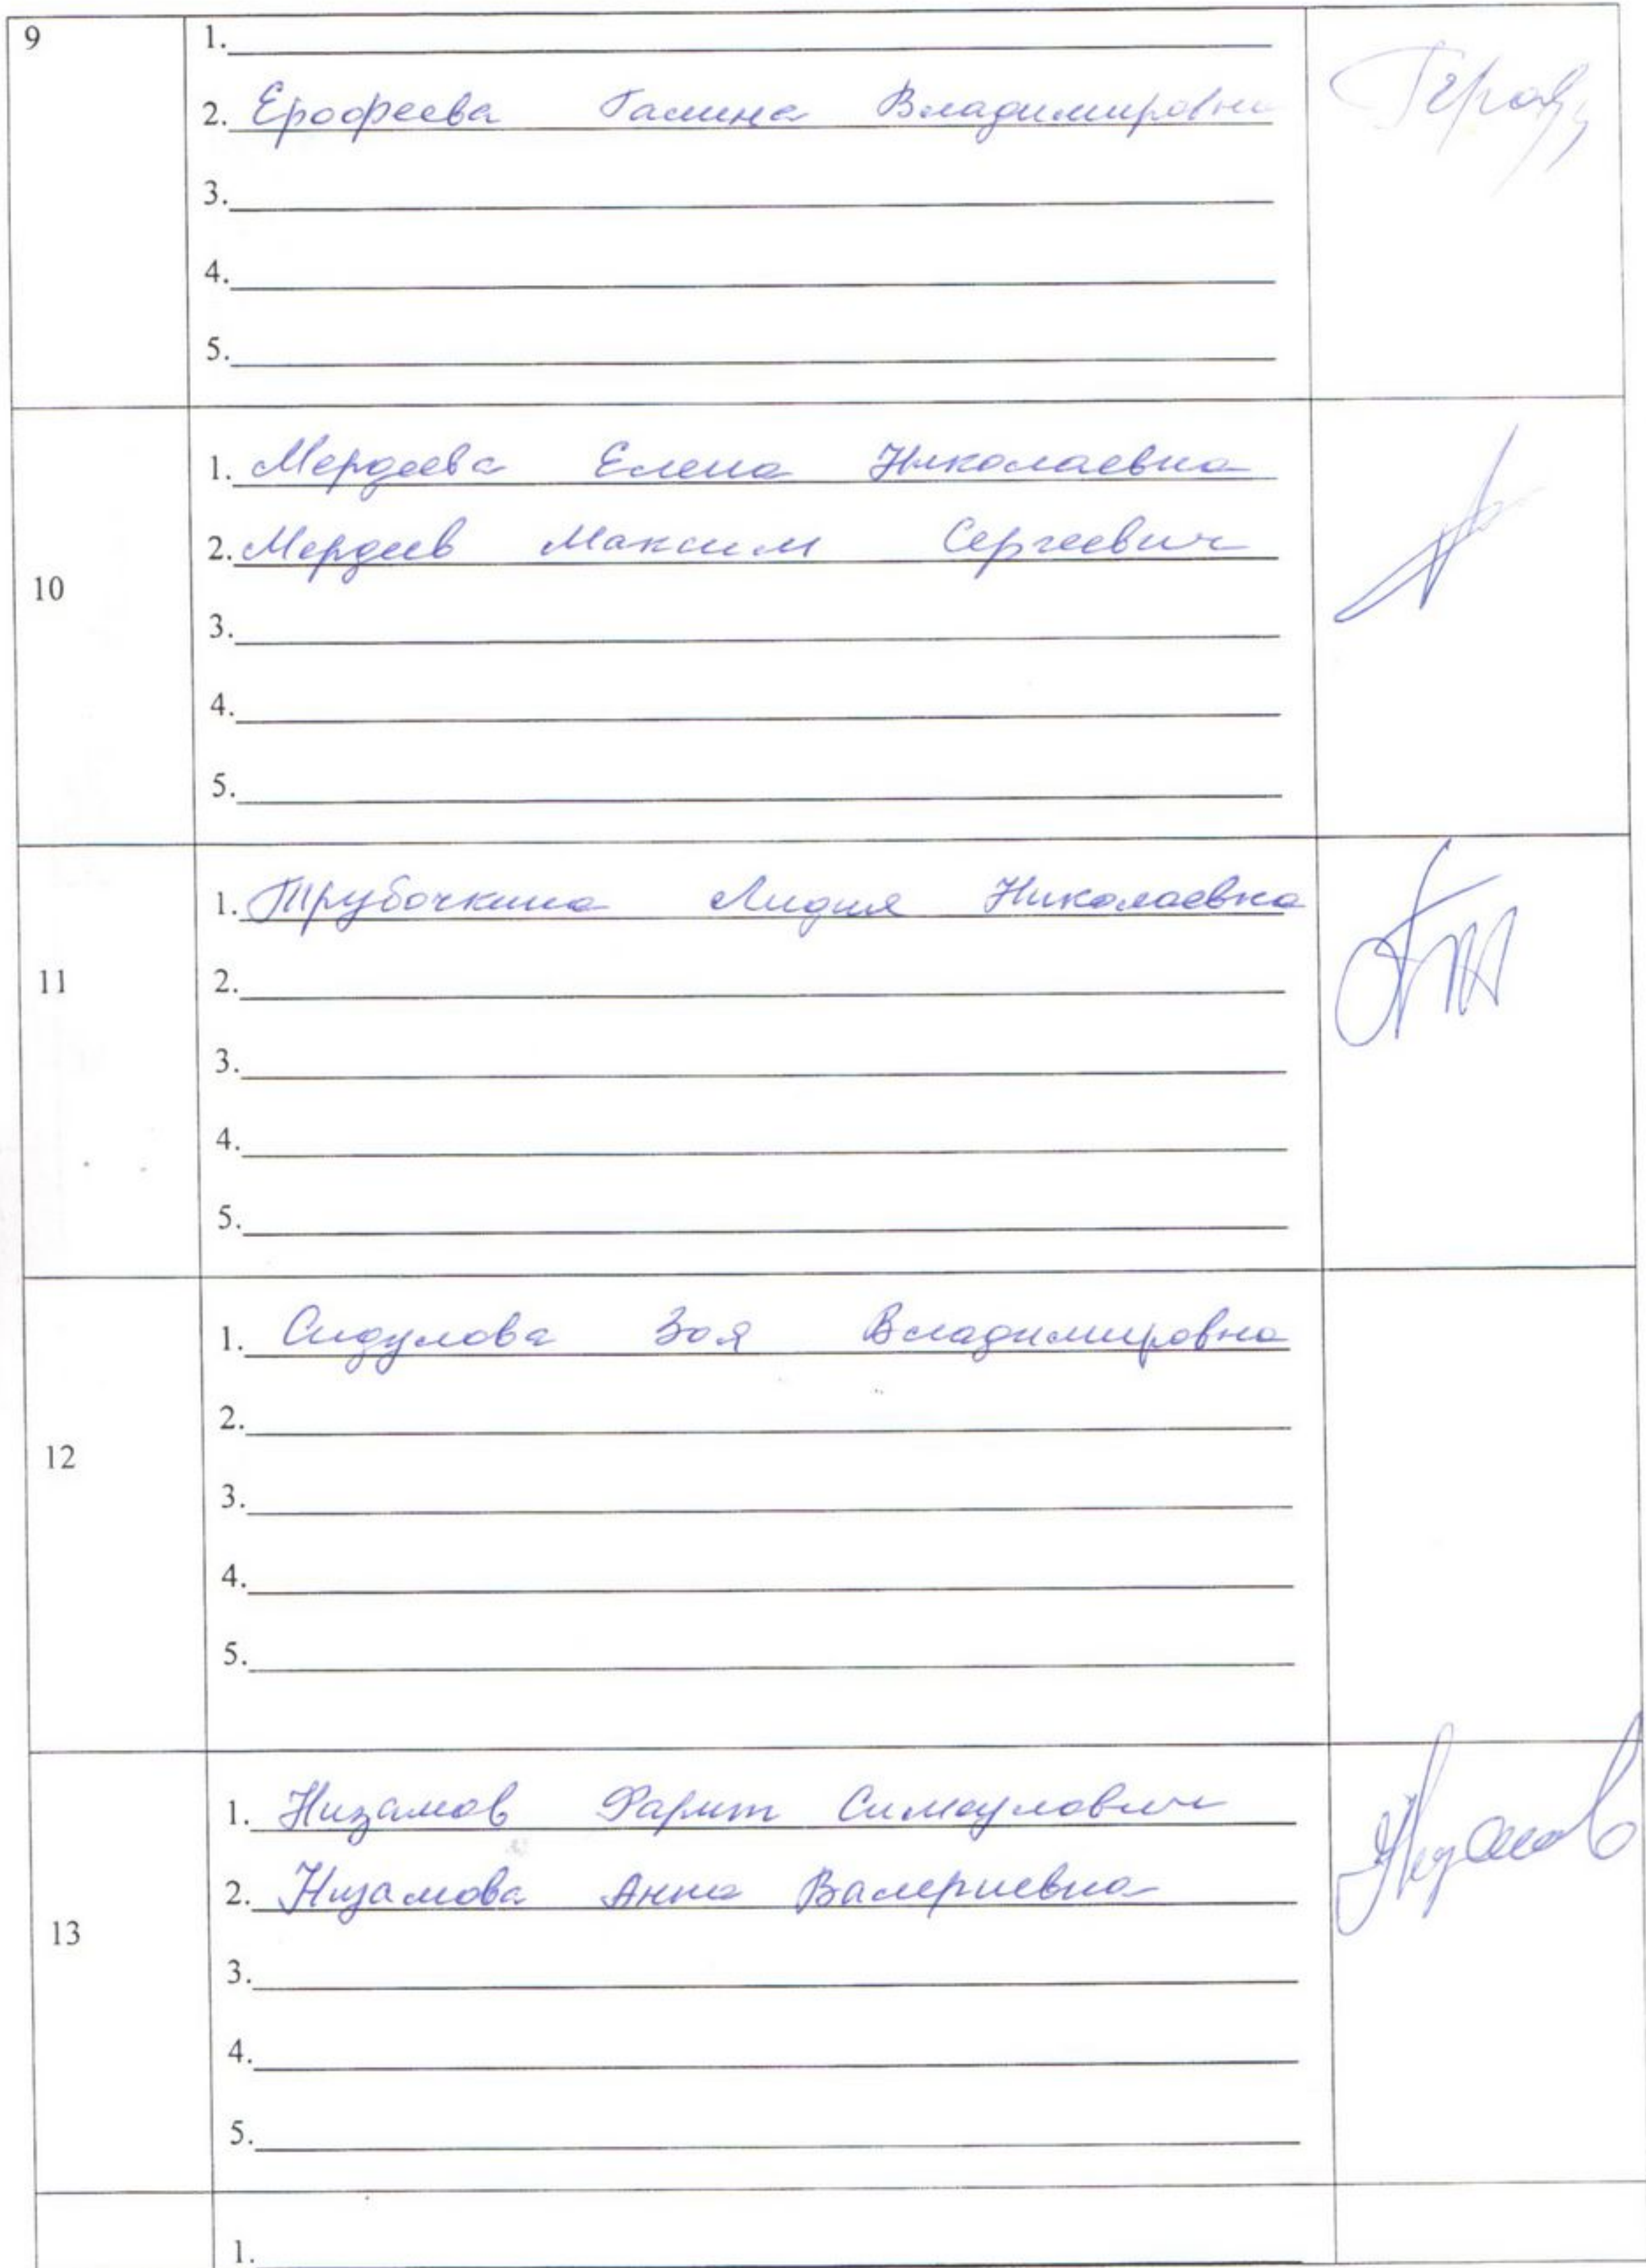 9
1.
2. Ерофеева Галина Владимировна
3.
4.
5.
10
1. Мердеева Елена Николаевна
2. Мердеев Максим Сергеевич
3.
4.
5.
11
1. Трубочкина Лидия Николаевна
2.
3.
4.
5.
12
1. Сидулова Зоя Владимировна
2.
3.
4.
5.
13
1. Низамов Фарит
2. Низамова Анна Валериевна
3.
4.
5.
1.